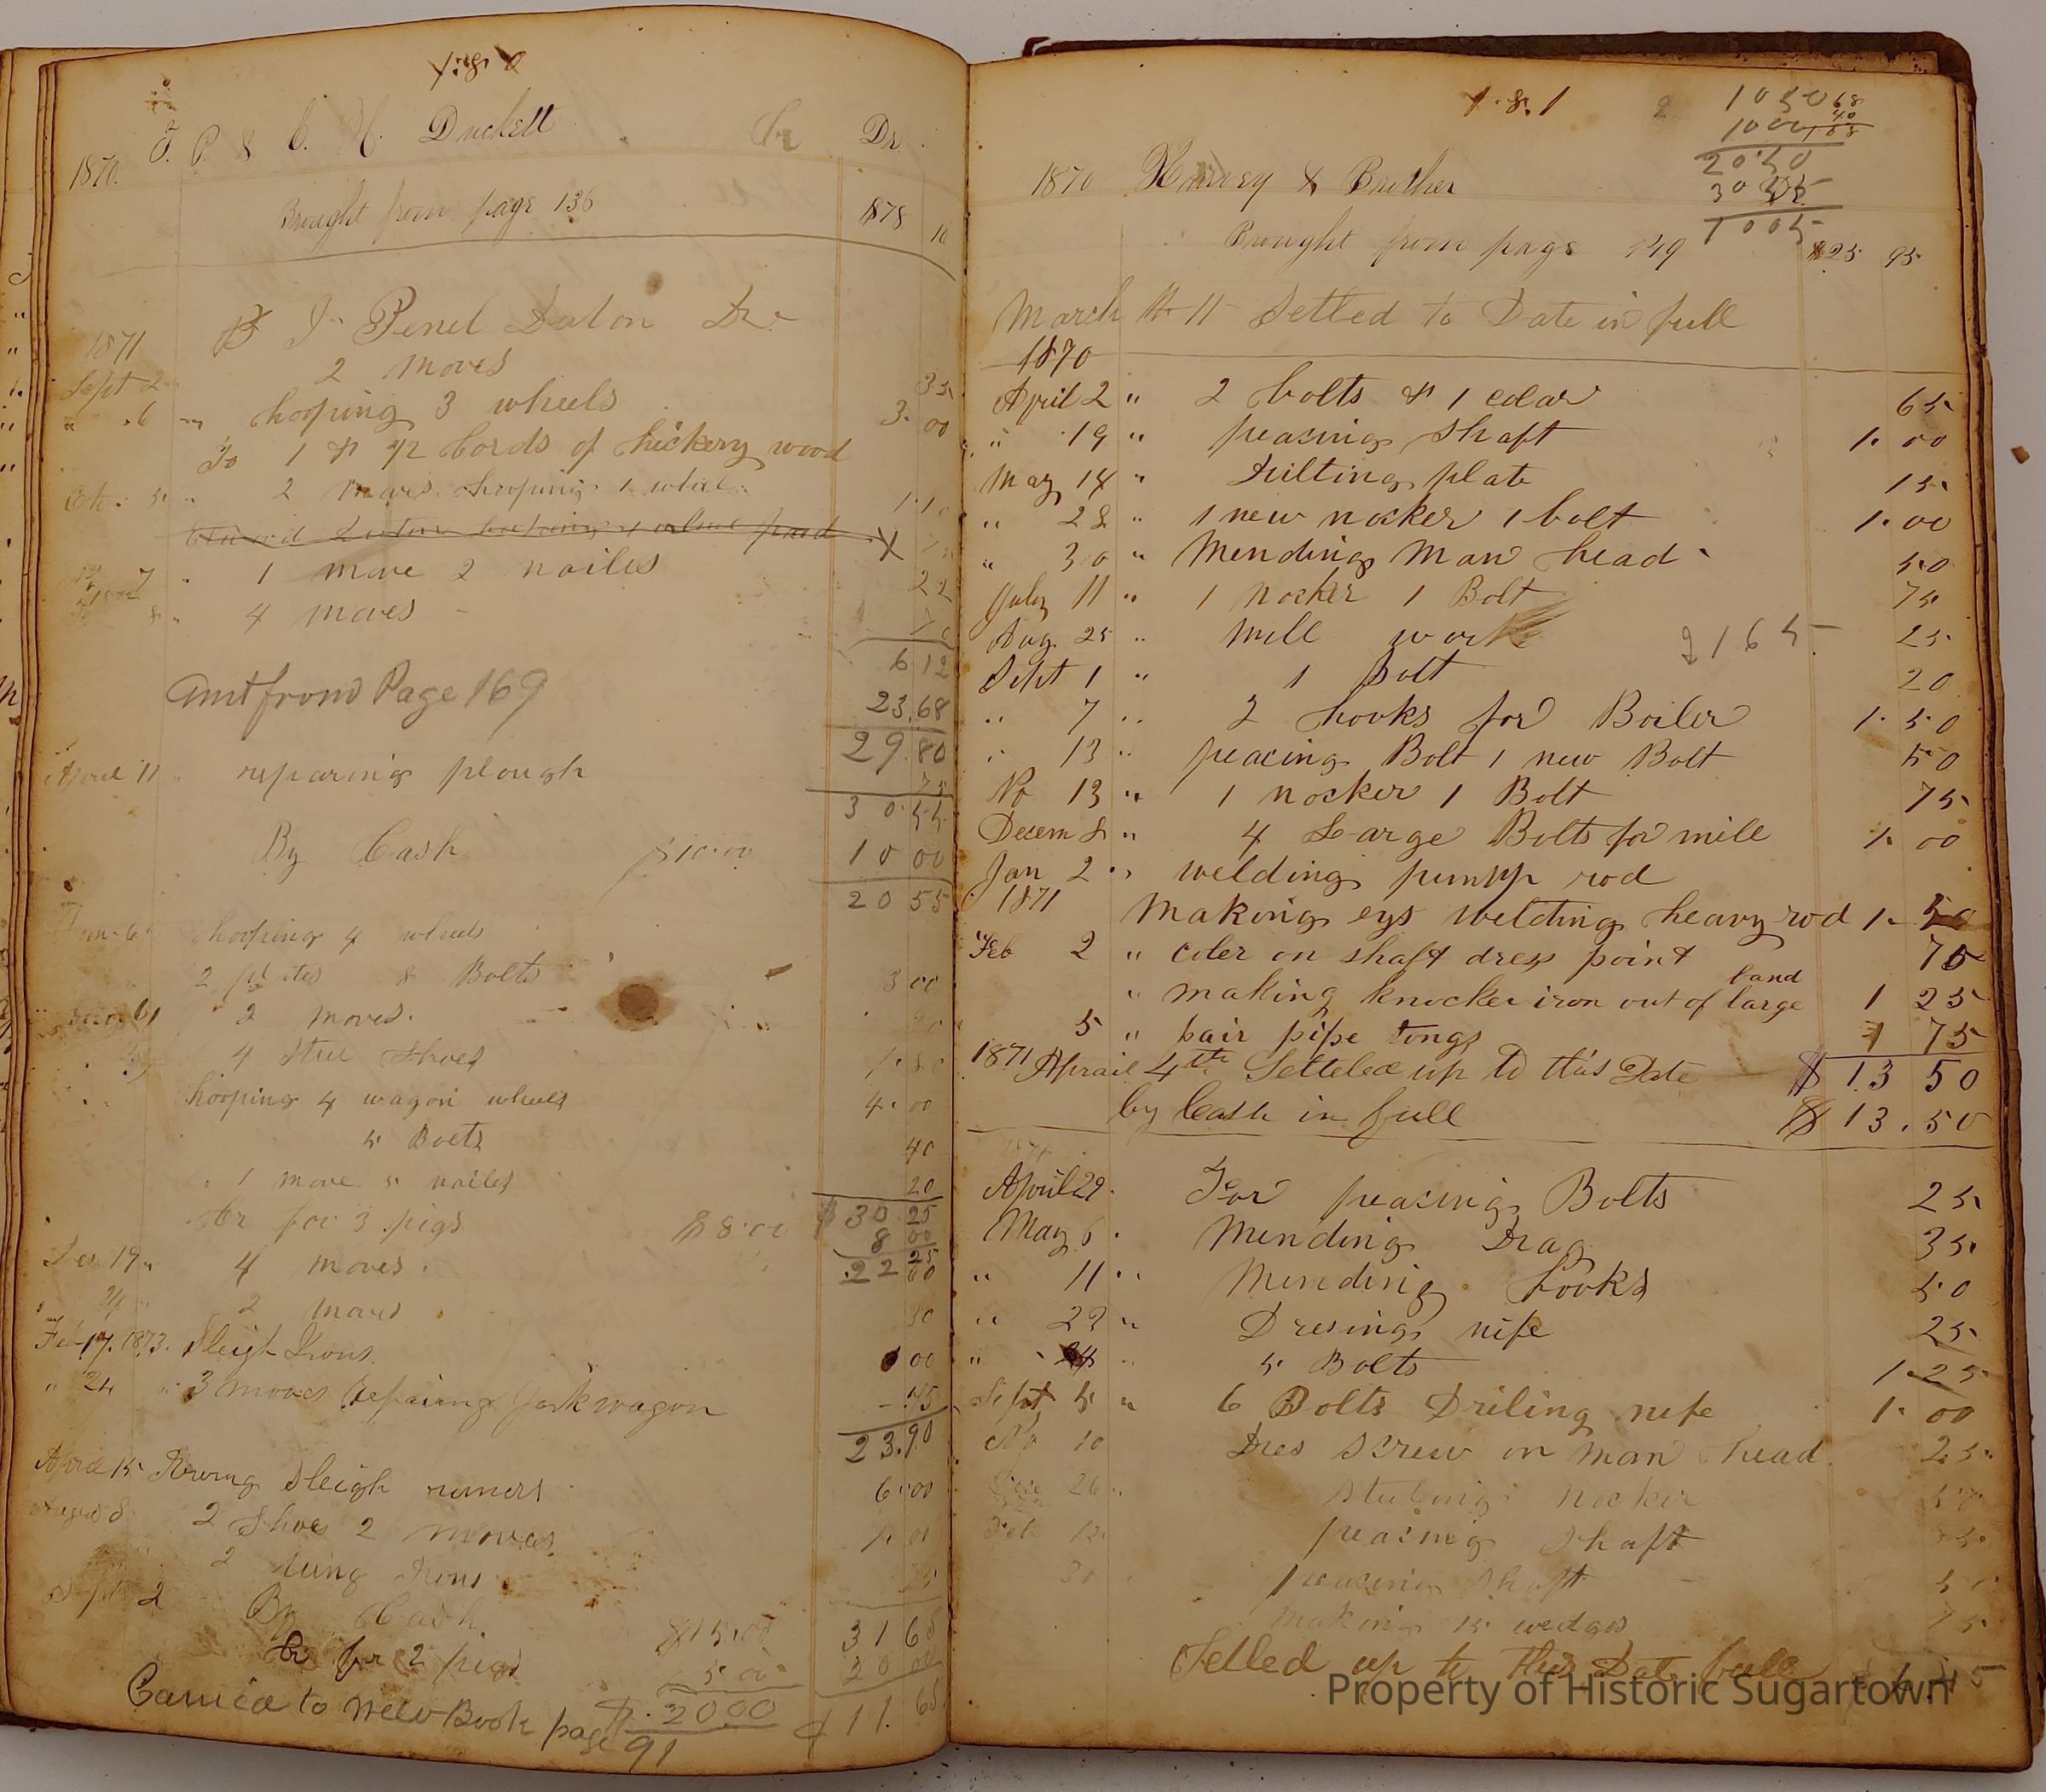 180
J. P. & C. H. Duckett Cr Dr
1870.
Brought from page 136 $78 10
J. Penel Duton Dr
1871
Sept 2 2 moves 35
" 6 " hooping 3 wheels 3.00
To 1 & 1/2 Cords of hickery wood
Oct. 5 " 2 moves hooping 1 wheel 1.10
hooping 4 wheel paid
7 " 1 move 2 nailes 22
8 " 4 moves
6 12
amt from Page 169 23.68
29.80
April 11 reparing plough 75
30.55
By Cash $10.00 10 00
20 55
6 hooping 4 wheels
2 plates 8 Bolts 3 00
2 moves.
4 Stee Shoes
hooping 4 wagon wheels 4.00
5 Bolts 40
1 move 5 nailes 20
$30 25
Cr for 3 pigs $8.00 8 00
22 25
19 " 4 moves. 60
2 moves 30
Feb 17. 1873. Sleigh Irons. 00
" 24 " 3 moves repairing Jack wagon - .75
23.90
April 15 Sleigh runers 6.00
8 2 Shoes 2 moves 1.00
2 Irons 75
Sept 2 By Cash. $15.00 31 65
Cr for 2 pigs 5.00 20 00
$.20.00 $11.65
Carried to new Book page 91
181
1050 68
1000 40
2050
1005
1870 Harvey & Brother
Brought from page 149 $25 95
March 11 Setled to Date in full
1870
April 2 " 2 bolts & 1 colar 65
" 19 " peacing shaft 1.00
May 14 " plate 15
" 28 " 1 new nocker 1 bolt 1.00
" 30 " Mending Man head 50
July 11 " 1 Nocker 1 Bolt 75
Aug 25 " Mill work 25
2165
Sept 1 " 1 Bolt 20
" 7 " 2 hooks for Boiler 1.50
" 13 " peacing Bolt 1 new Bolt 50
No 13 " 1 nocker 1 Bolt 75
Decem 8 " 4 Large Bolts for mill 1.00
Jan 2 " welding pumpp rod
1871
Making eys welding heavy rod 1. 50
Feb 2 " coler on shaft dress point 75
band
" making knocker iron out of large 1 25
5 " pair pipe tongs 1 75
1871 Aprail 4th Setteled up to this Date $13 50
by Cash in full $13.50
April 29. For peacing Bolts 25
May 6. Mending Drag 35
" 11 " Mending hooks 50
" 23 " Dresing nife 25
" 24 " 5 Bolts 1.25
Sept 5 " 6 Bolts Driling nife 1.00
No 10 Dres Screw on man head 25
Dec 26 " nocker
Feb 12 peacing shaft
30 peacing shaft 50
making 15 wedges 75
Setled up to this Date full
Property of Historic Sugartown